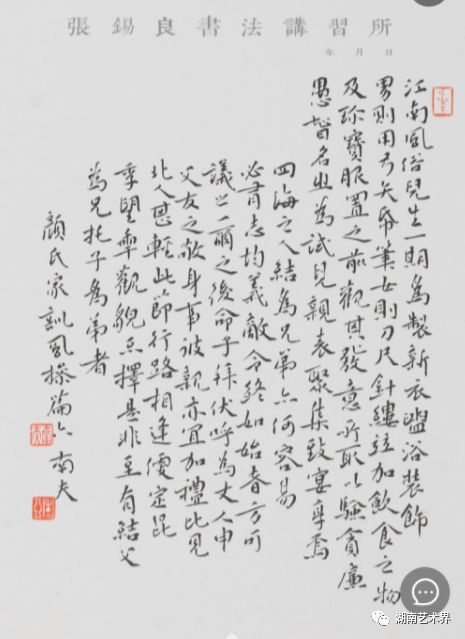 張錫良書法講習所
年 月 日
江南風俗兒生一期為製新衣盥浴裝飾
男則用弓矢帋筆女則刀尺針縷並加飲食之物
及珍寶服置之前觀其發意所取以驗貪廉
愚智名之為試兒親表聚集致宴享焉
四海之人結為兄弟亦何容易
必有志均義敵令終如始者方可
議之一爾之後命子拜伏呼為丈人申
父友之敬身事彼親亦宜加禮比見
北人甚輕此節行路相逢便定昆
季望年觀貌不擇是非至有結父
為兄托子為弟者
顏氏家訓風操篇六 南夫
湖南艺术界